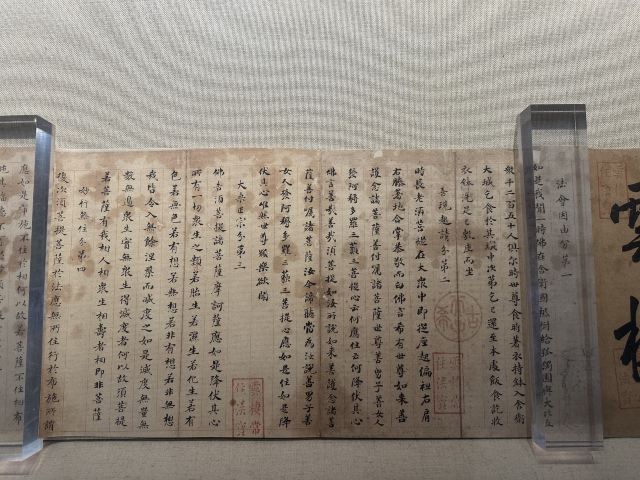 雲
棲
法會因由分第一
如是我聞一時佛在舍衛國祇樹給孤獨園與大比丘
衆千二百五十人俱爾時世尊食時著衣持鉢入舍衛
大城乞食於其城中次第乞已還至本處飯食訖收
衣鉢洗足已敷座而坐
善現起請分第二
時長老須菩提在大衆中即從座起偏袒右肩
右膝著地合掌恭敬而白佛言希有世尊如來善
護念諸菩薩善付囑諸菩薩世尊善男子善女人
發阿耨多羅三藐三菩提心云何應住云何降伏其心
佛言善哉善哉須菩提如汝所說如來善護念諸菩
薩善付囑諸菩薩汝今諦聽當為汝說善男子善
女人發阿耨多羅三藐三菩提心應如是住如是降
伏其心唯然世尊願樂欲聞
大乘正宗分第三
佛告須菩提諸菩薩摩訶薩應如是降伏其心
所有一切衆生之類若胎生若濕生若化生若有
色若無色若有想若無想若非有想若非無想
我皆令入無餘涅槃而滅度之如是滅度無量無
數無邊衆生實無衆生得滅度者何以故須菩提
若菩薩有我相人相衆生相壽者相即非菩薩
妙行無住分第四
復次須菩提菩薩於法應無所住行於布施所謂
應如是布施不住於相何以故若菩薩不住相布
雲棲常
住法寶
雲棲常
住法寶